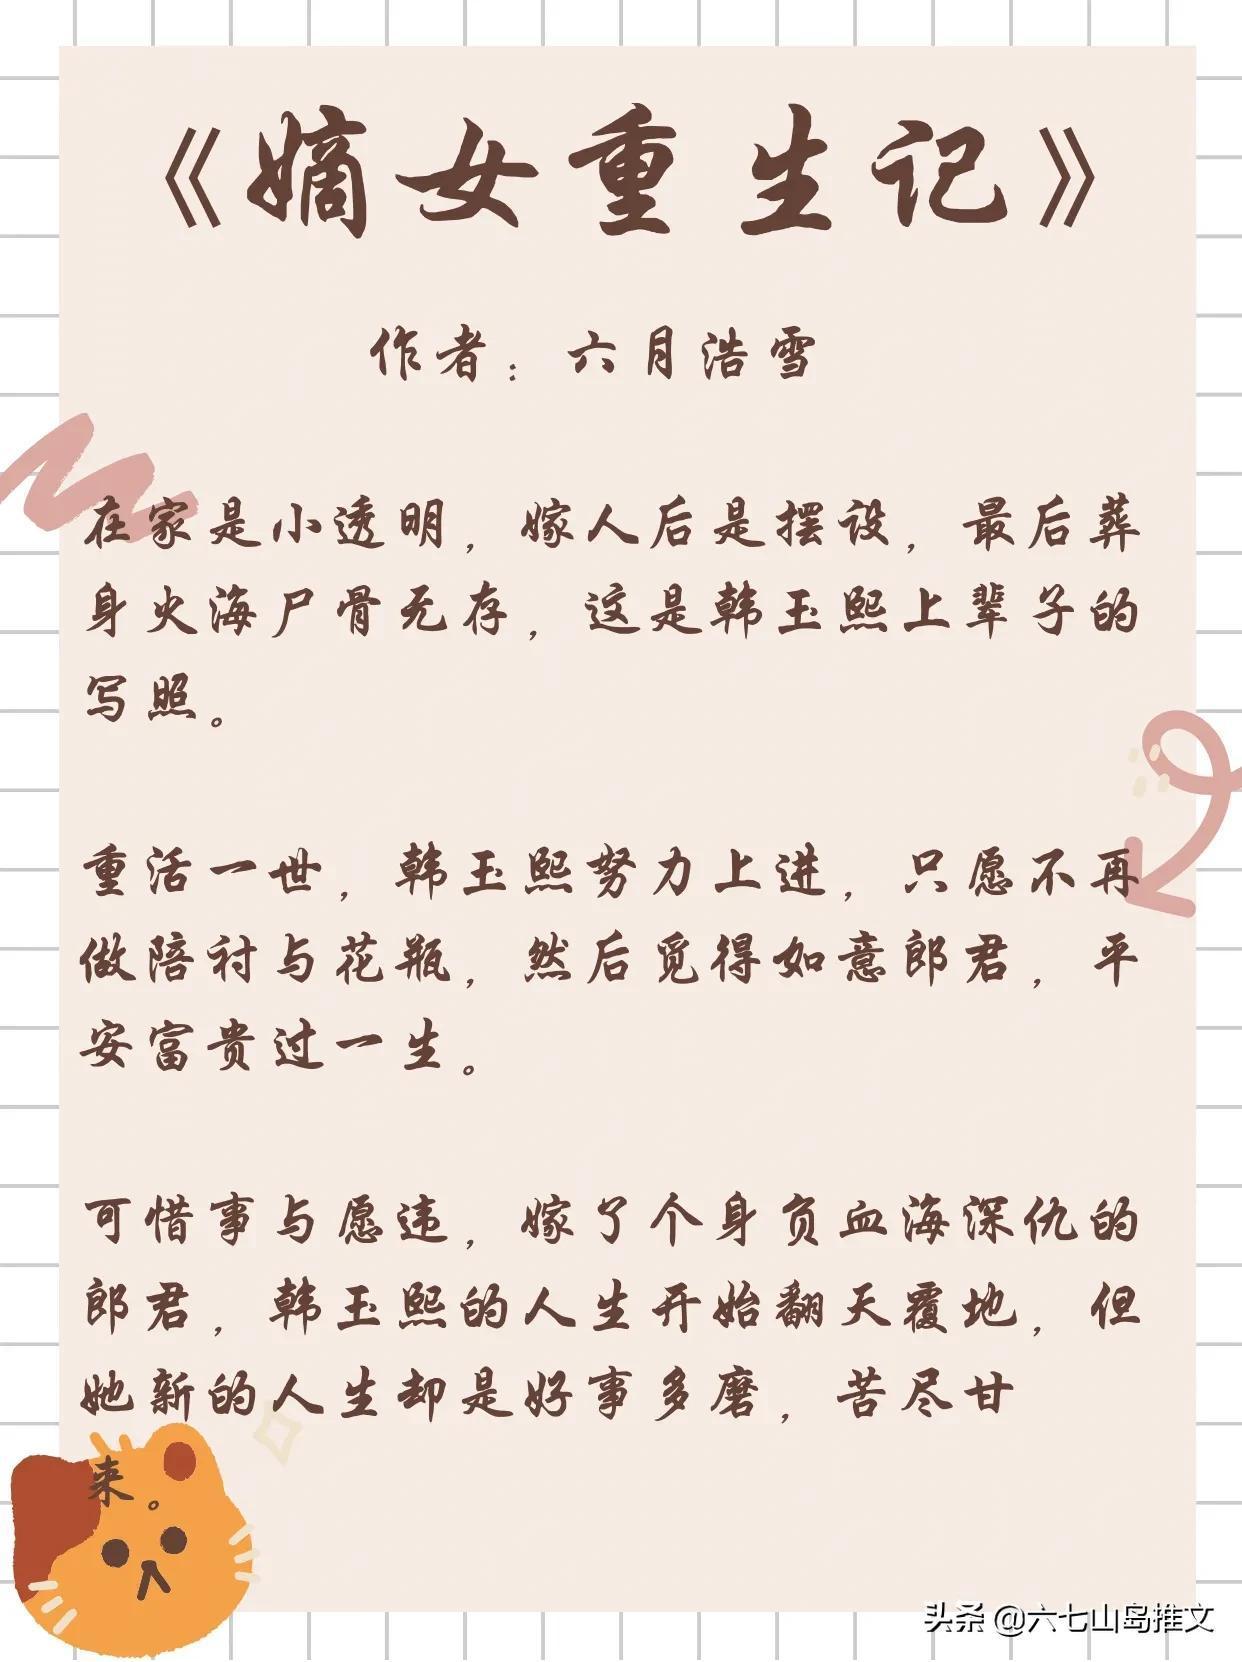 《嫡女重生记》
作者：六月浩雪
在家是小透明，嫁人后是摆设，最后葬
身火海尸骨无存，这是韩玉熙上辈子的
写照。
重活一世，韩玉熙努力上进，只愿不再
做陪衬与花瓶，然后觅得如意郎君，平
安富贵过一生。
可惜事与愿违，嫁了个身负血海深仇的
郎君，韩玉熙的人生开始翻天覆地，但
她新的人生却是好事多磨，苦尽甘
来。
头条 @六七山岛推文